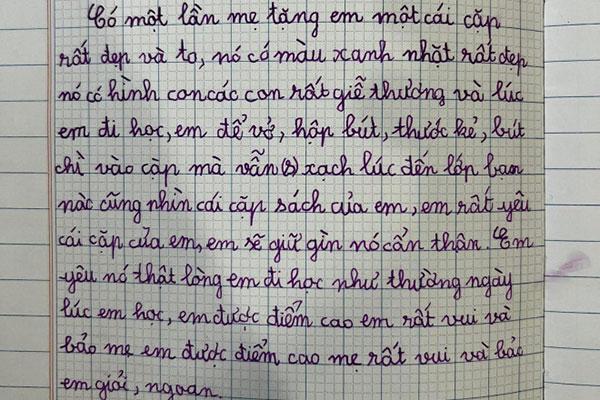 Có một lần mẹ tặng em một cái cặp
rất đẹp và to, nó có màu xanh nhạt rất đẹp
nó có hình con các con rất giễ thương và lúc
em đi học, em để vở, hộp bút, thước kẻ, bút
chì vào cặp mà vẫn(s) xạch lúc đến lớp bạn
nàc cũng nhìn cái cặp sách của em, em rất yêu
cái cặp của em, em sẽ giữ gìn nó cẩn thân. Em
yêu nó thật lòng em đi học như thường ngày
lúc em học, em được điểm cao em rất vui và
bảo mẹ em được điểm cao mẹ rất vui và bảo
em giỏi, ngoan.